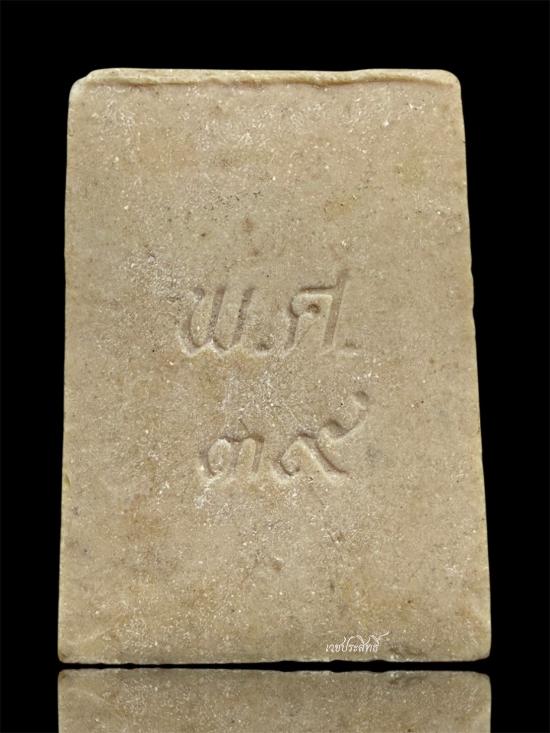 พ.ศ.
๓๙
เวชประสิทธิ์